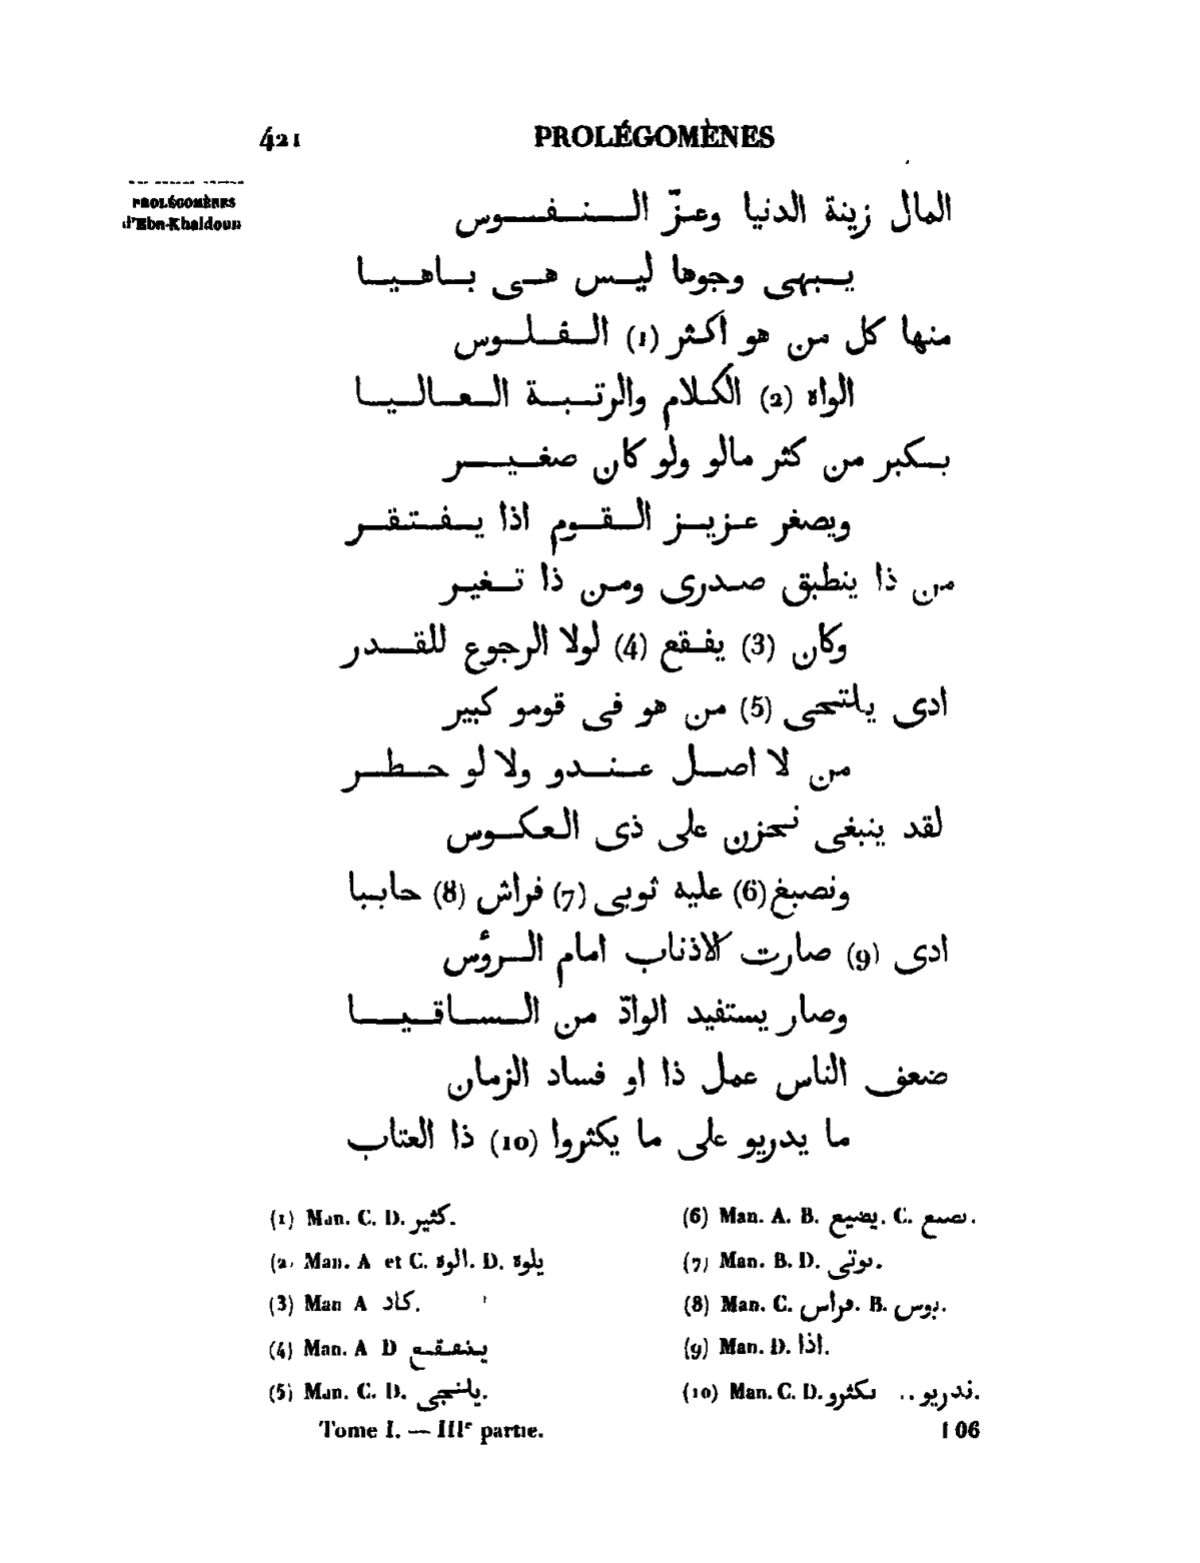 421
PROLÉGOMÈNES
PROLÉGOMÈNES
d'Ebn-Khaldoun
المال زينة الدنيا وعزّ النفوس
يبهى وجوها ليس هى باهيا
منها كل من هو اكثر (1) الفلوس
الواه (2) الكلام والرتبة العاليا
بكبر من كثر مالو ولو كان صغير
ويصغر عزيز القوم اذا يفتقر
من ذا ينطبق صدرى ومن ذا تغير
وكان (3) يفقع (4) لولا الرجوع للقدر
ادى يلتحى (5) من هو فى قومو كبير
من لا اصل عندو ولا لو حطر
لقد ينبغى نحزن على ذى العكوس
ونصبغ (6) عليه ثوبى (7) فراش (8) حابيا
ادى (9) صارت الاذناب امام الرؤس
وصار يستفيد الوادّ من الساقيا
ضعف الناس عمل ذا او فساد الزمان
ما يدريو على ما يكثروا (10) ذا العتاب
(1) Man. C. D. كثير.
(2) Man. A et C. الوة. D. يلوة
(3) Man A كاد.
(4) Man. A D ينفقع
(5) Man. C. D. يلتجى.
(6) Man. A. B. يضيع. C.
(7) Man. B. D.
(8) Man. C. فراس. B.
(9) Man. D. اذا.
(10) Man. C. D. ندريو .. نكثرو.
Tome I. — IIIe partie.
106